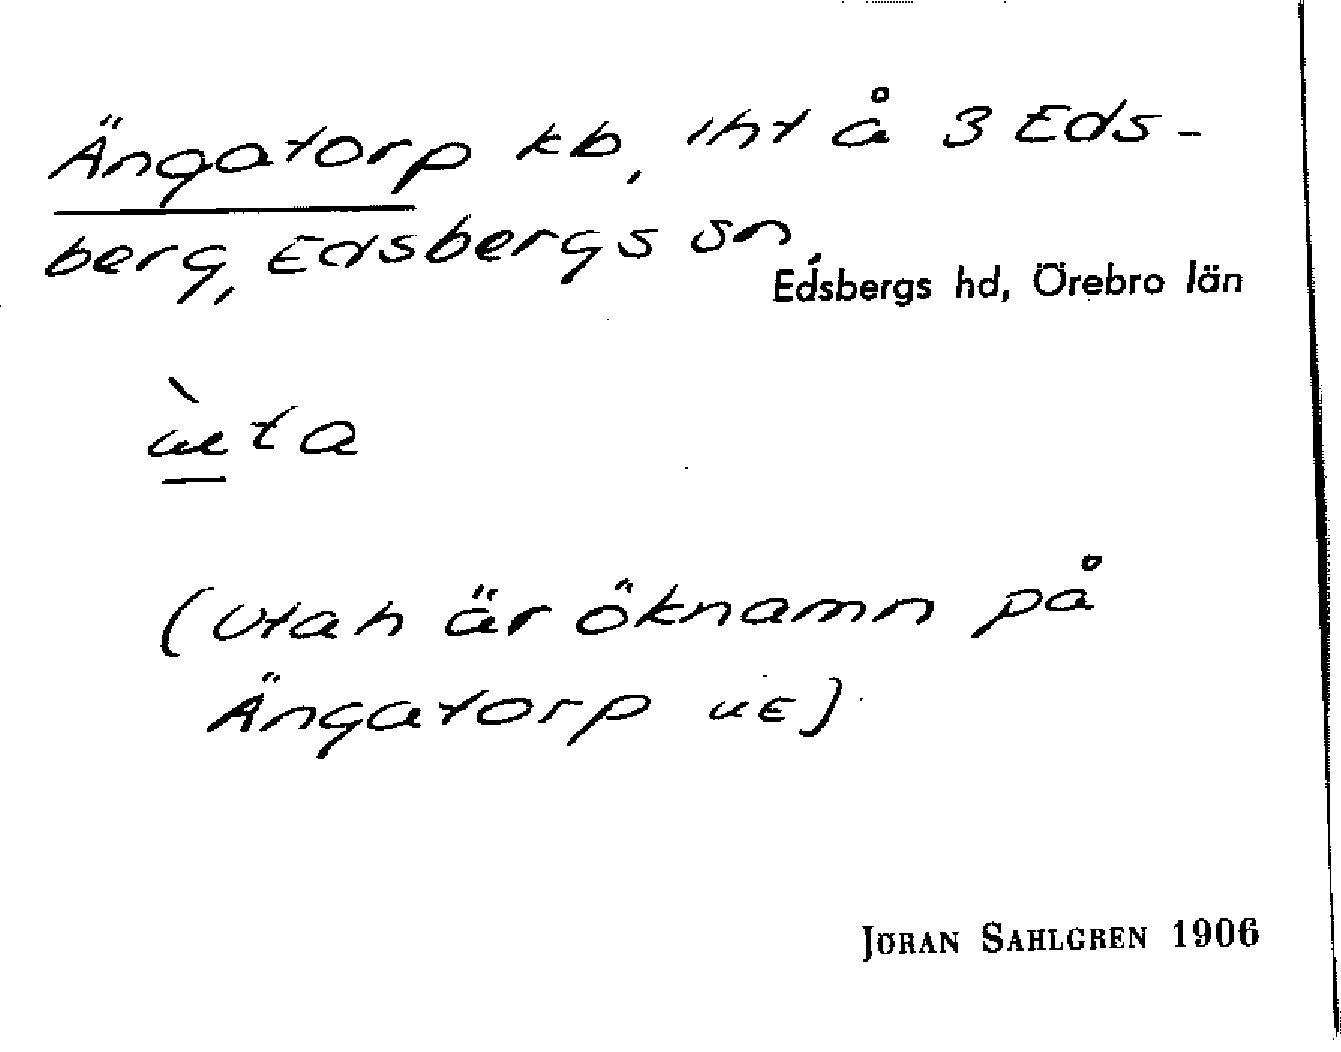 Ängatorp kb, iht å 3 Eds-
berg, Edsbergs sn,
Edsbergs hd, Örebro län
(Utah är öknamn på
Ängatorp
JÖRAN SAHLGREN 1906